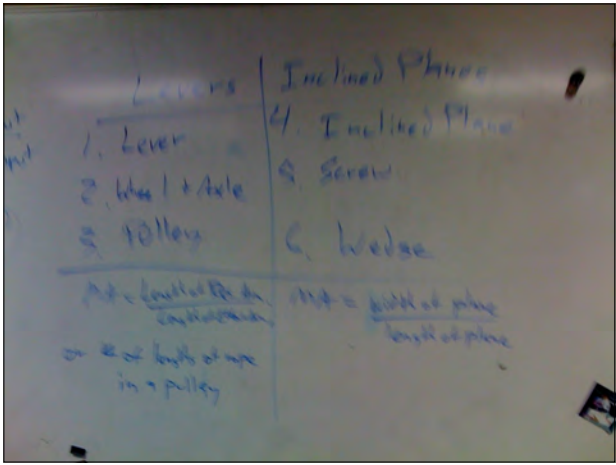 Levers
1. Lever
2. Wheel + Axle
3. Pulley
MA = Length of
Length of
or # of lengths of rope
in a pulley
Inclined Planes
4. Inclined Plane
5. Screw
6. Wedge
MA = width of plane
length of plane